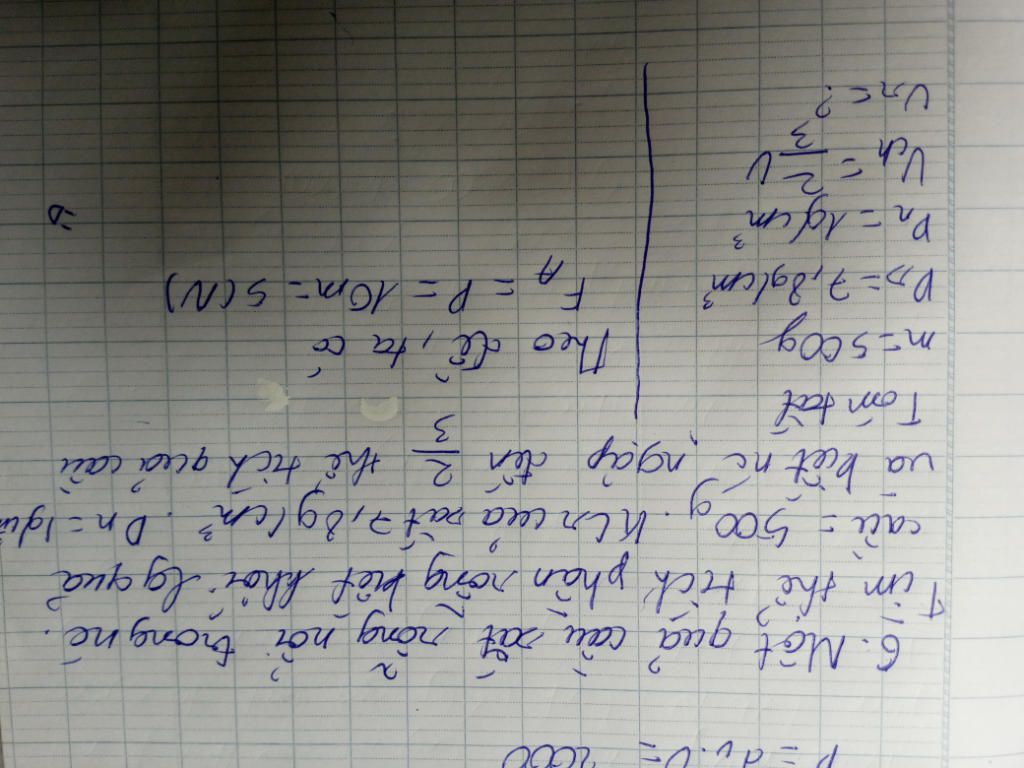 P = dv.V = 2000
6. Một quả cầu sắt rỗng nổi trong nc.
Tìm thể tích phần rỗng biết khối lg quả
cầu = 500 g. KLR của sắt 7,8g/cm³. Dn = 1g/cm³
và biết nc ngập đến 2/3 thể tích quả cầu
Tóm tắt
m = 500g
D = 7,8g/cm³
Dn = 1g/cm³
Vch = 2/3 V
Vr = ?
Theo đề, ta có
FA = P = 10m = 5(N)